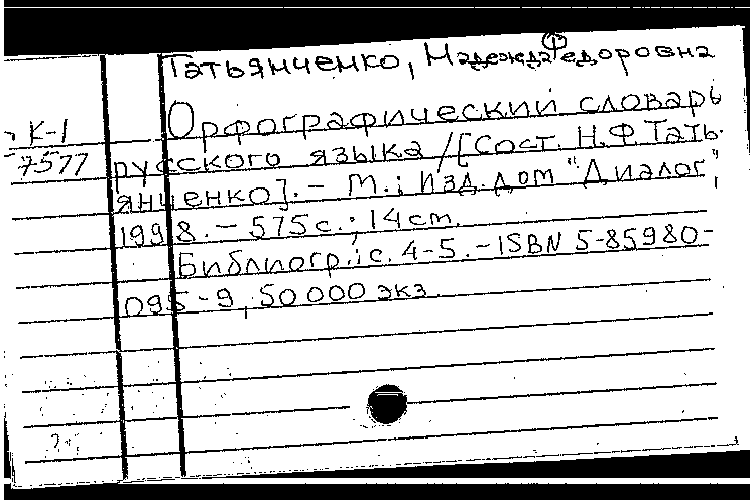 Татьянченко, Надежда Федоровна
К-1
7577
Орфографический словарь
русского языка /[Сост. Н.Ф.Тать-
янченко]. - М.: Изд. дом "Диалог",
1998. - 575 с.; 14 см.
Библиогр.: с. 4-5. - ISBN 5-85980-
095-9, 50 000 экз.